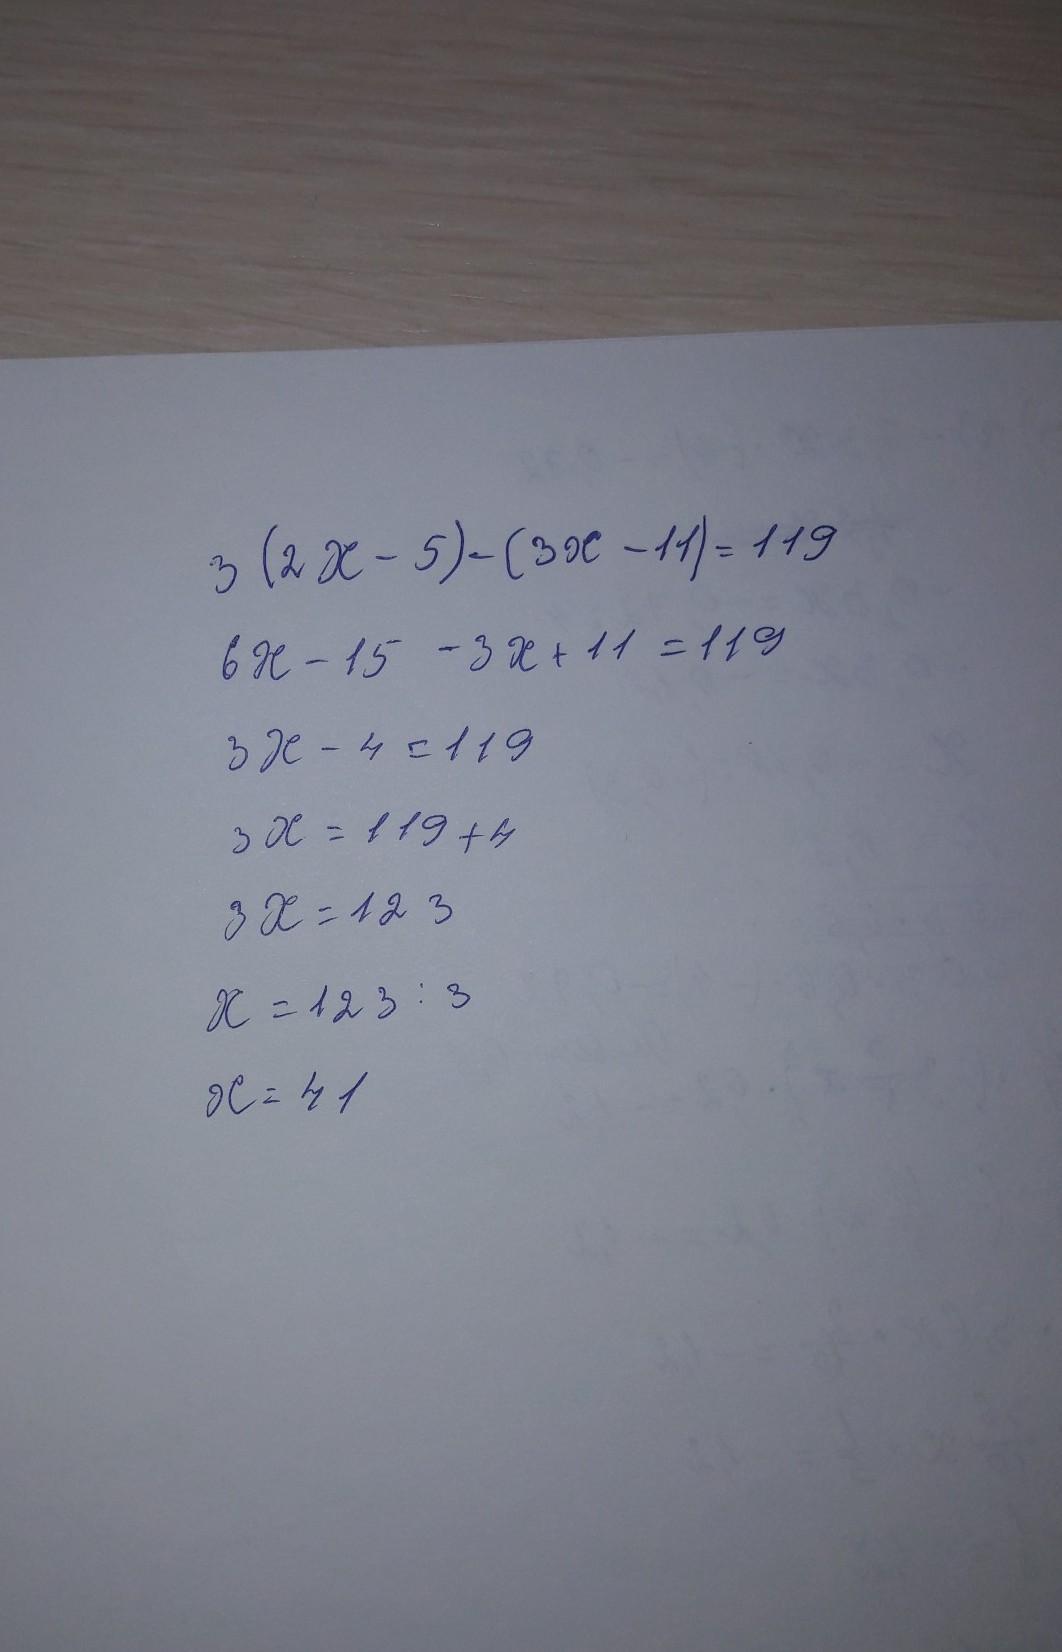 3(2x-5)-(3x-11)=119
6x-15-3x+11=119
3x-4=119
3x=119+4
3x=123
x=123:3
x=41